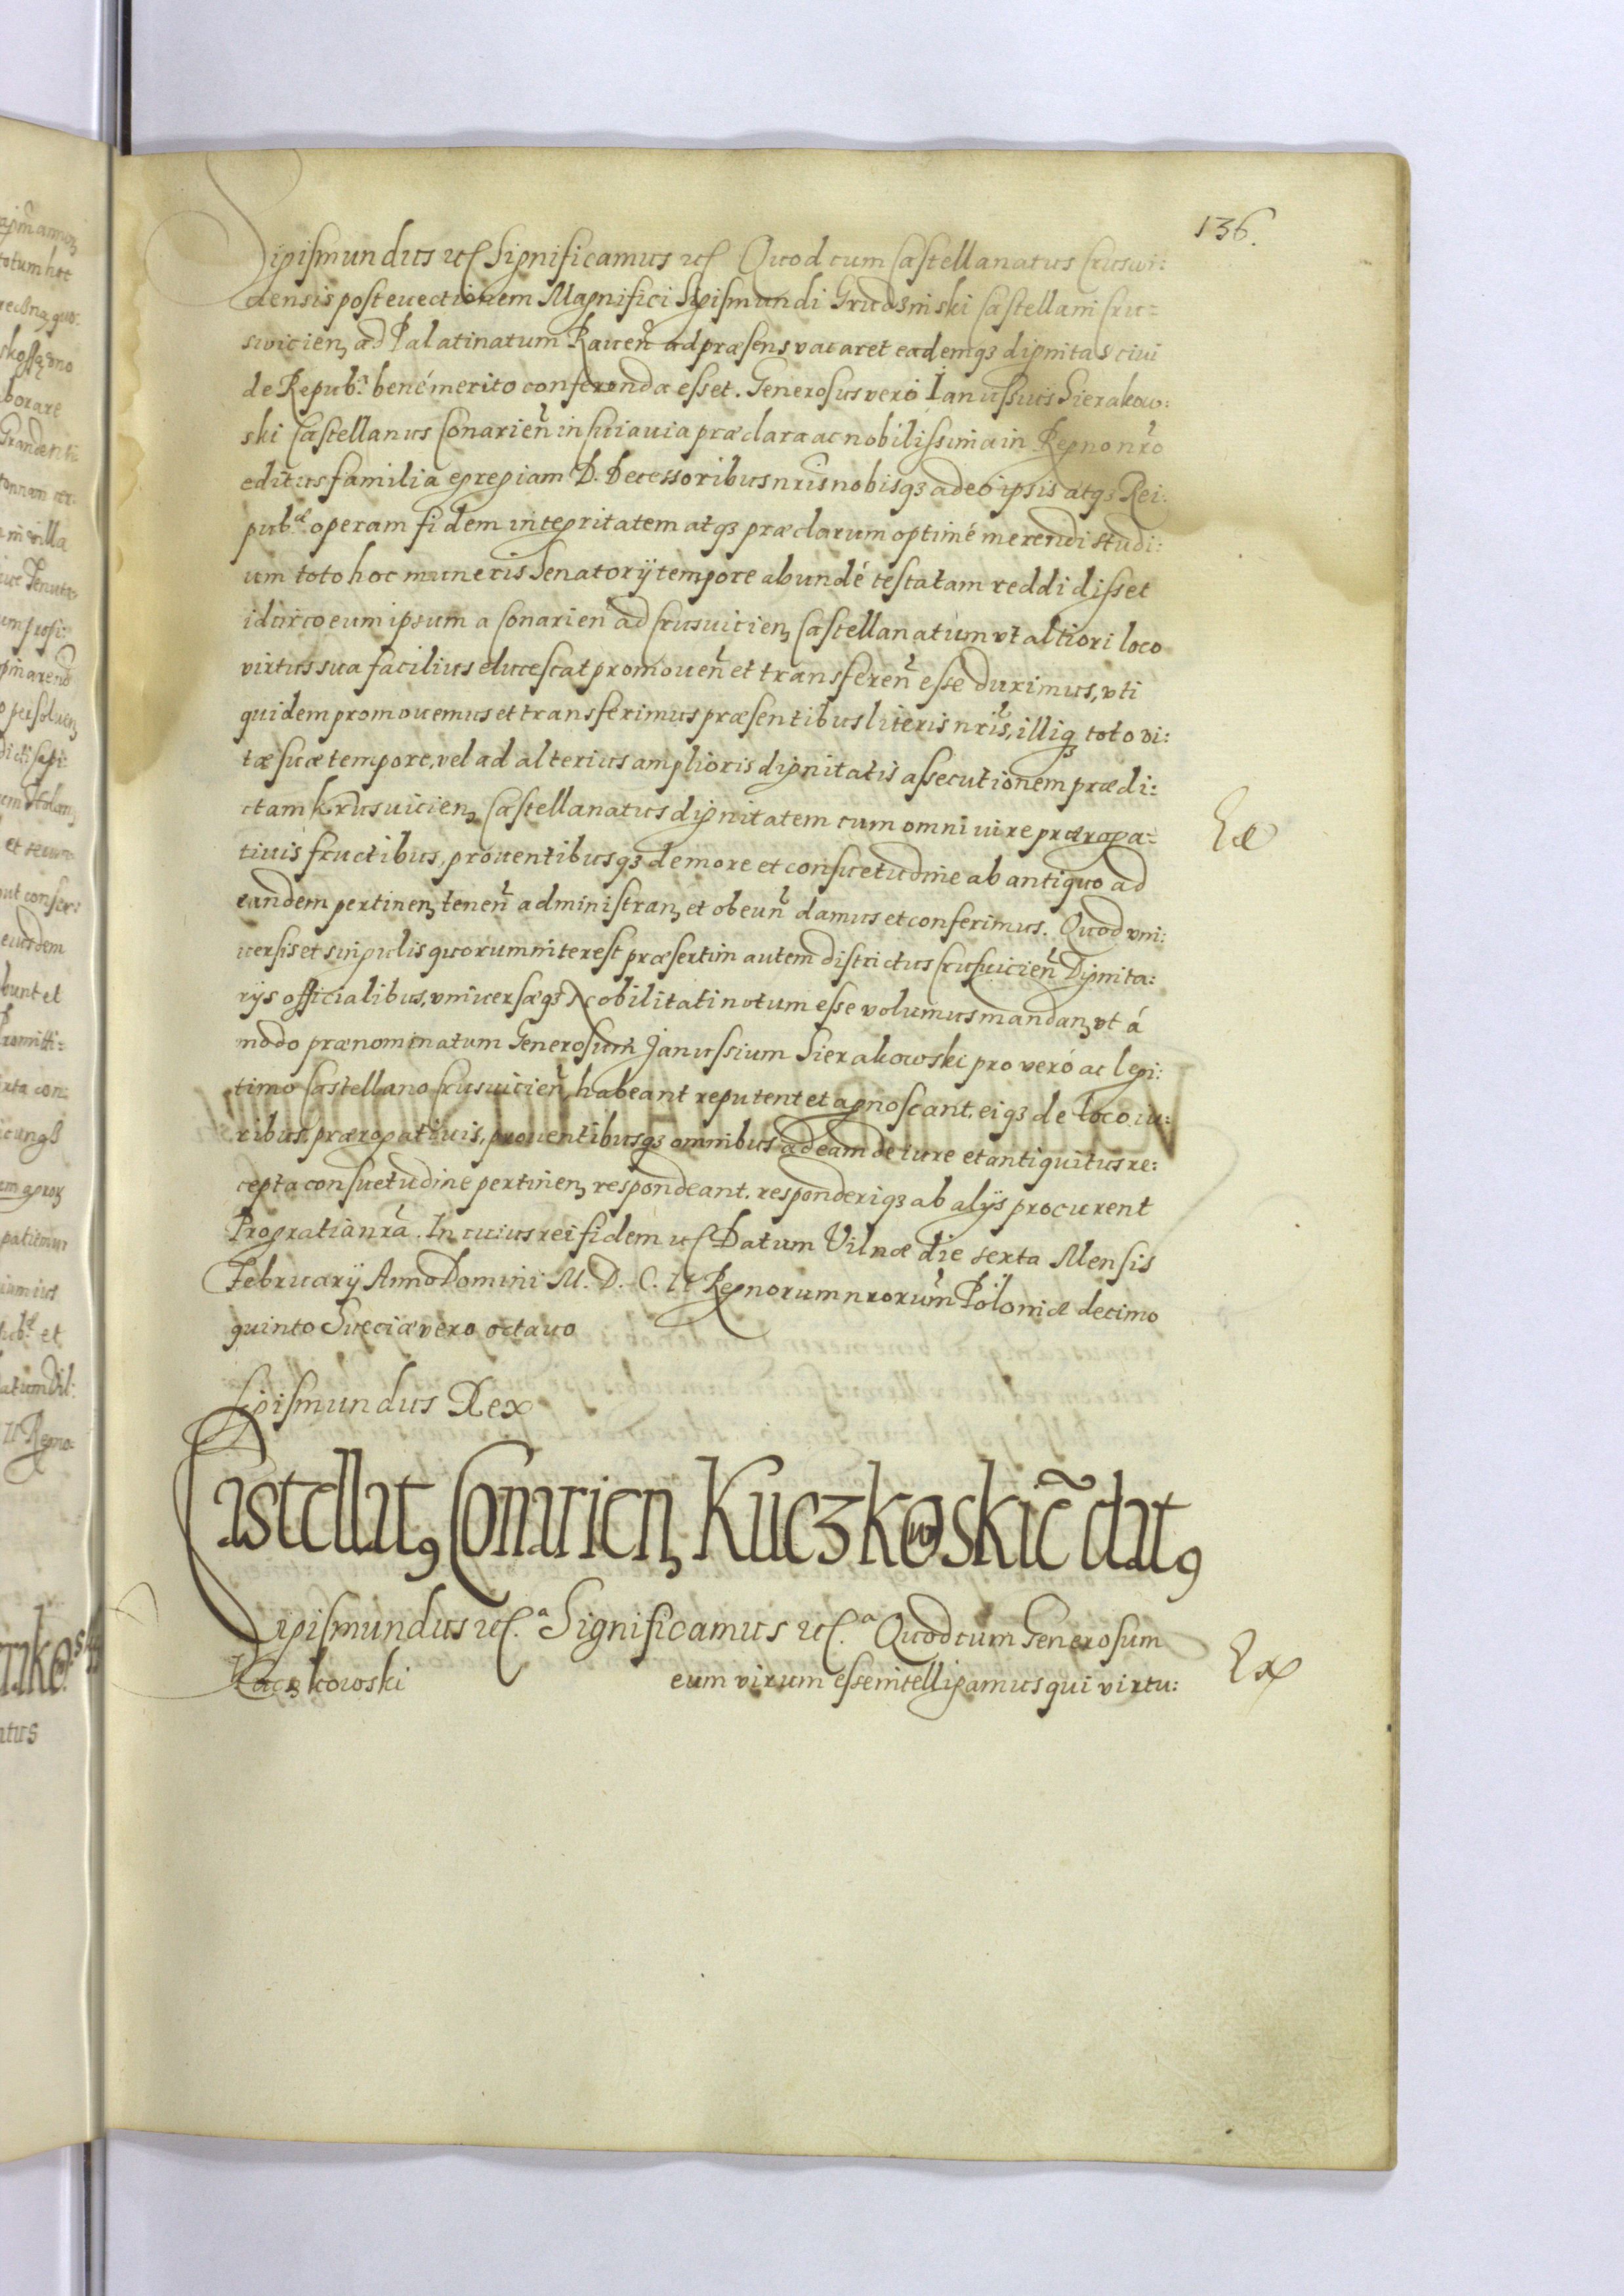 136.
Sigismundus etc Significamus etc Quod cum Castellanatus Cruswi:
ciensis post euectionem Magnifici Sigismundi Grudzinski Castellani Cru=
swicien, ad Palatinatum Rauen̄ ad præsens vacaret eademq3 dignitas ciui
de Repub.ᶜᵃ bené merito conferenda esset. Generosus veró Ianussius Sierakow:
ski Castellanus Conarien̄ in Cuiauia præclara ac nobilissima in Regno nr̄o
editus familia egregiam D. Decessoribus nr̄is nobisq3 adeó ipsis atq3 Rei:
pub.ᶜᵃᵉ operam fidem integritatem atq3 præclarum optimé merendi studi:
um toto hoc muneris Senatorÿ tempore abundé testatam reddidisset
idcirco eum ipsum a Conarien ad Crusuicien, Castellanatum vt altiori loco
virtus sua facilius elucescat promouen̄ et transferen̄ esse duximus, vti
quidem promouemus et transferimus præsentibus literis nr̄is, illiq3 toto vi:
tæ suæ tempore, vel ad alterius amplioris dignitatis assecutionem prædi:
ctam Krusuicien, Castellanatus dignitatem cum omni iure præroga=
tiuis fructibus, prouentibusq3 de more et consuetudine ab antiquo ad
eandem pertinen, tenen̄ administran, et obeun̄ damus et conferimus. Quod vni:
uersis et singulis quorum interest præsertim autem districtus Crusuicien̄ Dignita:
rÿs officialibus, vniuersæq3 Nobilitati notum esse volumus mandan, vt á
modo prænominatum Generosum Janussium Sierakowski pro veró ac legi:
timo Castellano Crusuicien̄, habeant reputent et agnoscant, eiq3 de loco iu:
ribus, prærogatiuis, prouentibusq3 omnibus ad eam de iure et antiquitus re:
cepta consuetudine pertinen, respondeant. responderiq3 ab alÿs procurent
Pro gratia nr̄a. In cuius rei fidem etc Datum Vilnæ die sexta Mensis
Februarÿ Anno Domini M. D. C. II Regnorum nrorum̄ Poloniæ decimo
quinto Sueciæ vero octauo
Sigismundus Rex
Ex
Castellat9 Conarien, Kuczkowskie͂ dat9
Sigismundus etc.ᵃ Significamus etc.ᵃ Quod cum Generosum
Kuczkowski eum virum esse intelligamus qui virtu:
Ex